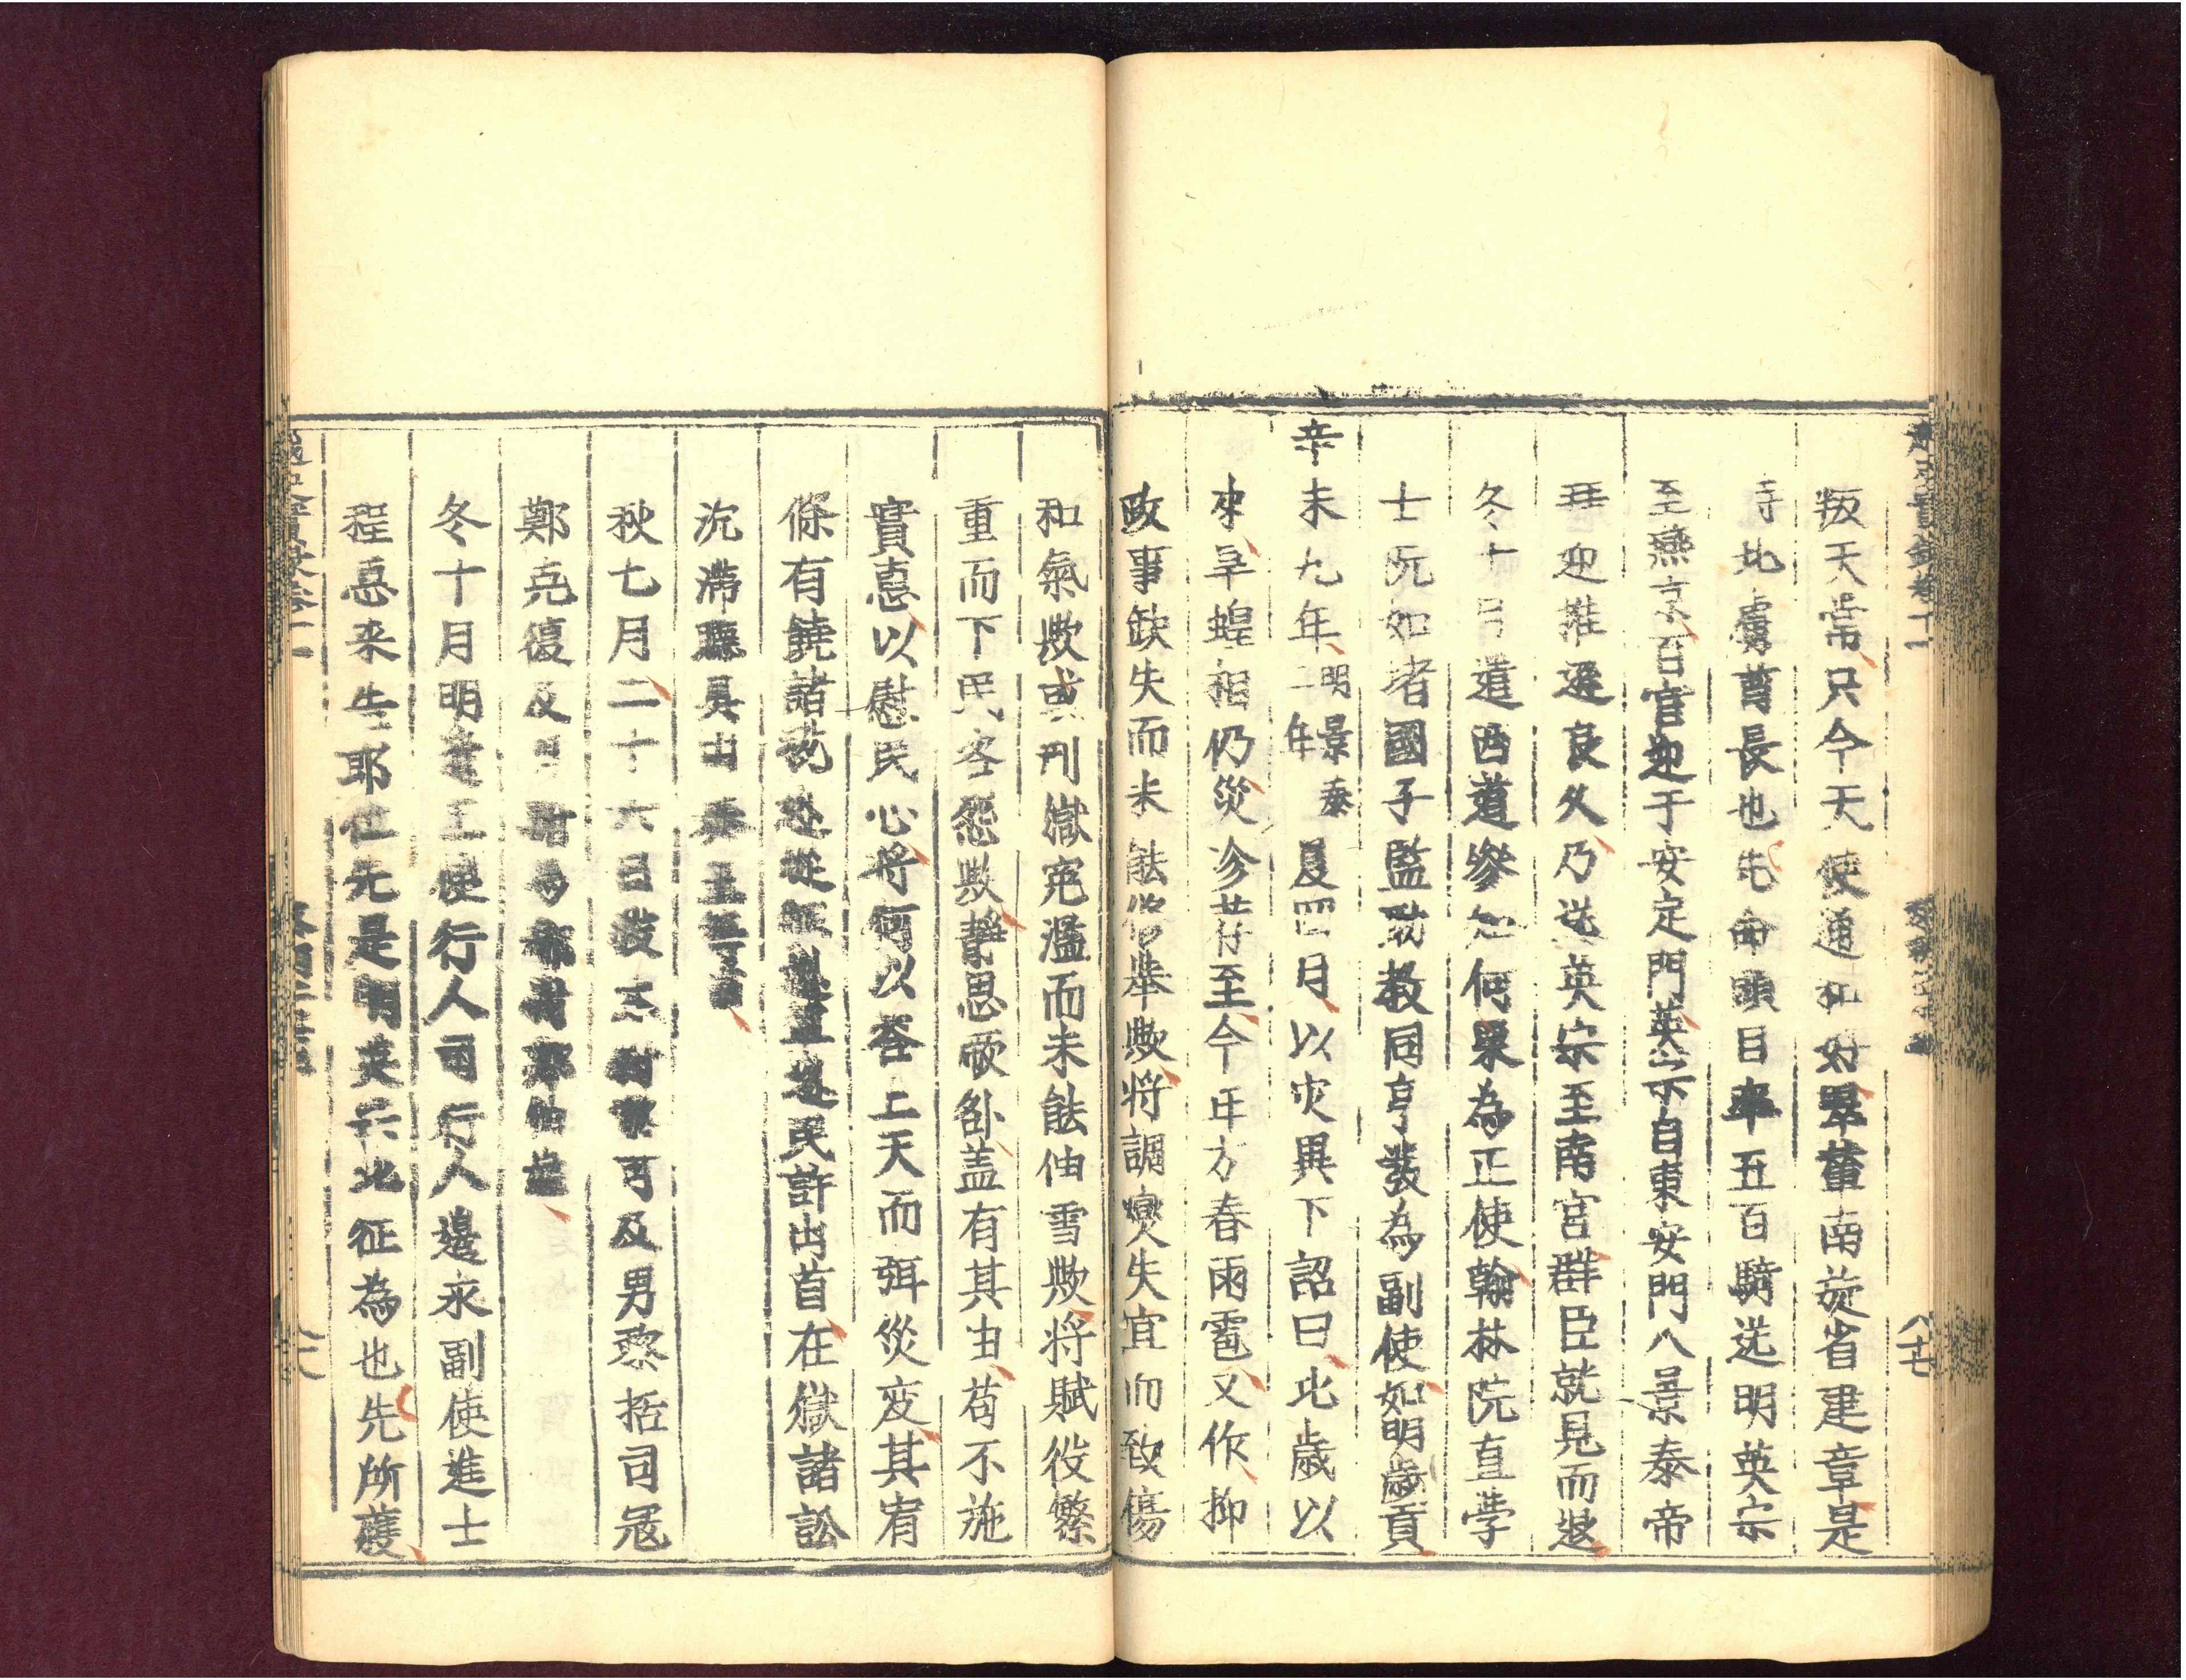 叛天常只今天使通和好翠輦南旋省建章是
時北虜酋長也先命頭目率五百騎送明英宗
至燕京百官迎于安定門英宗自東安門入景泰帝
拜迎推遜良久乃送英宗至南宮群臣就見而退
冬十月遣西道參知何栗為正使翰林院直学
士阮如堵國子監助教同亨發為副使如明歲貢
辛未九年明景泰二年夏四月以灾異下詔曰比歲以
來旱蝗相仍災沴荐至今年方春雨雹又作抑
政事缺失而未能修舉歟将調燮失宜而致傷
和氣歟或刑獄寃濫而未能伸雪歟将賦役繁
重而下民咨怨歟静思厥咎盖有其由苟不施
實惠以慰民心将何以答上天而弭災变其宥
條有饒諸
民許出首在獄諸訟
沉滯聽具出奏
秋七月二十六日殺太尉黎可及男黎括司寇
鄭克復及
冬十月明遣正使行人司行人邊永副使進士
程惠来告即位先是明英宗北征為也先所獲